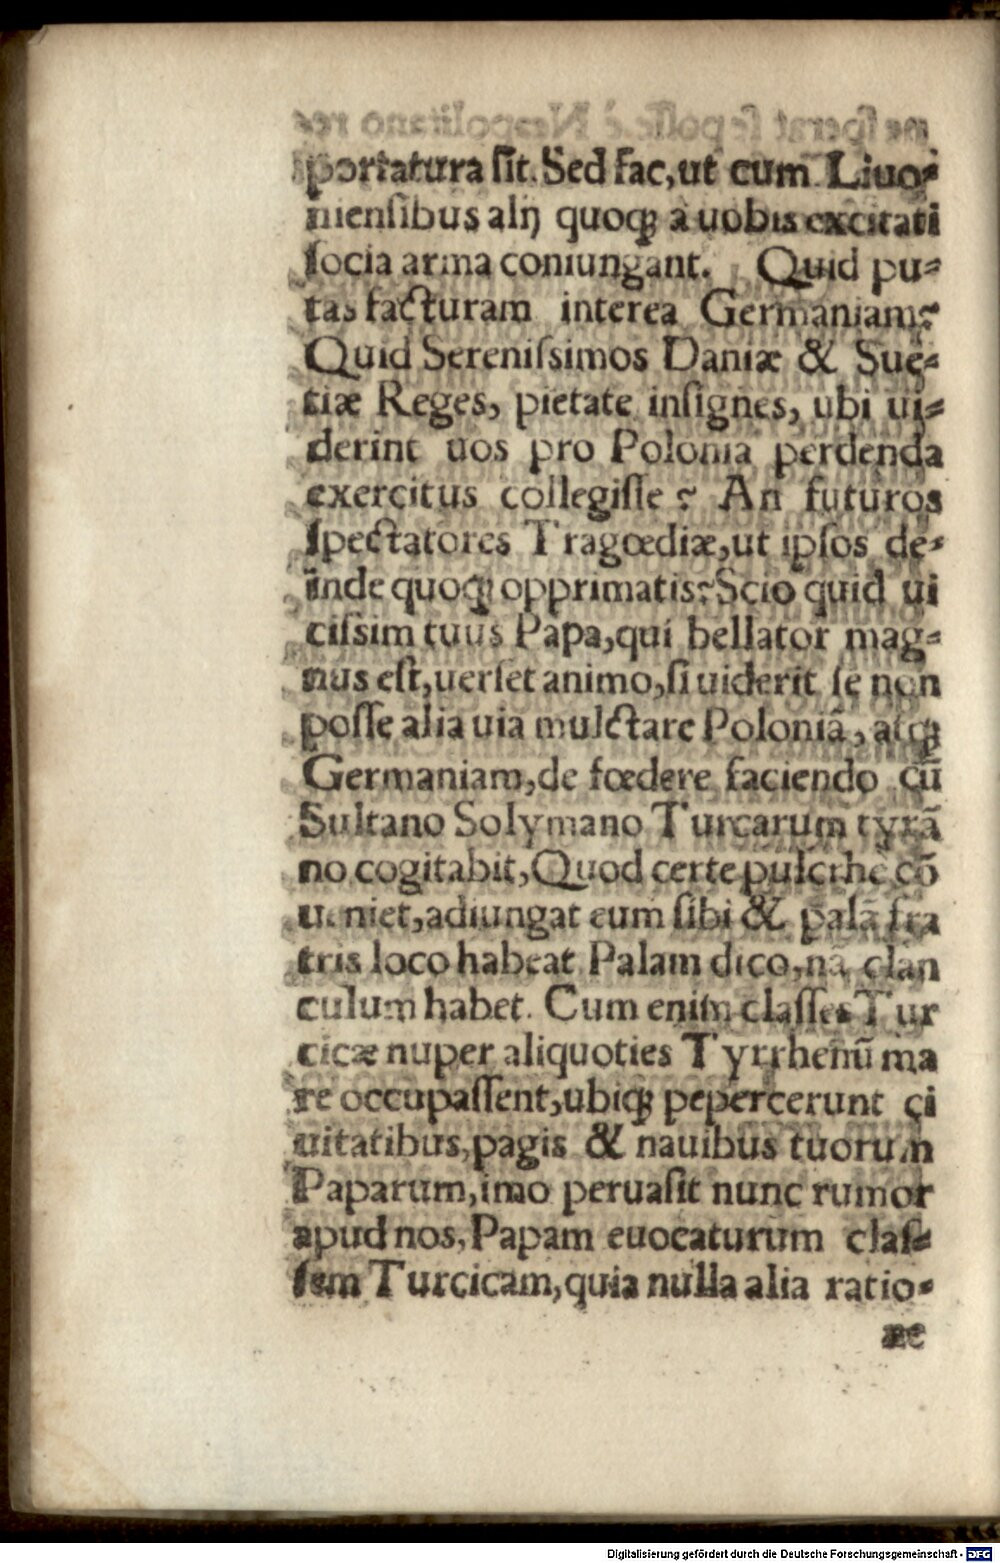 portatura ſit. Sed fac, ut cum Liuo⸗
nienſibus alij quoq; a uobis excitati
ſocia arma coniungant. Quid pu⸗
tas facturam interea Germaniam?
Quid Sereniſsimos Daniæ & Sue⸗
tiæ Reges, pietate inſignes, ubi ui⸗
derint uos pro Polonia perdenda
exercitus collegiſſe? An futuros
ſpectatores Tragœdiæ, ut ipſos de⸗
inde quoq; opprimatis? Scio quid ui
ciſsim tuus Papa, qui bellator mag⸗
nus eſt, uerſet animo, ſi uiderit ſe non
poſſe alia uia mulctare Poloniã, atq;
Germaniam, de fœdere faciendo cũ
Sultano Solymano Turcarum tyrã
no cogitabit, Quod certe pulcrhe cõ
ueniet, adiungat eum ſibi & palã fra
tris loco habeat Palam dico, nã clan
culum habet. Cum enim claſſes Tur
cicæ nuper aliquoties Tyrrhenũ ma
re occupaſſent, ubiq; pepercerunt ci
uitatibus, pagis & nauibus tuorum
Paparum, imo peruaſit nunc rumor
apud nos, Papam euocaturum claſ⸗
ſem Turcicam, quia nulla alia ratio⸗
ne
Digitalisierung gefördert durch die Deutsche Forschungsgemeinschaft - DFG